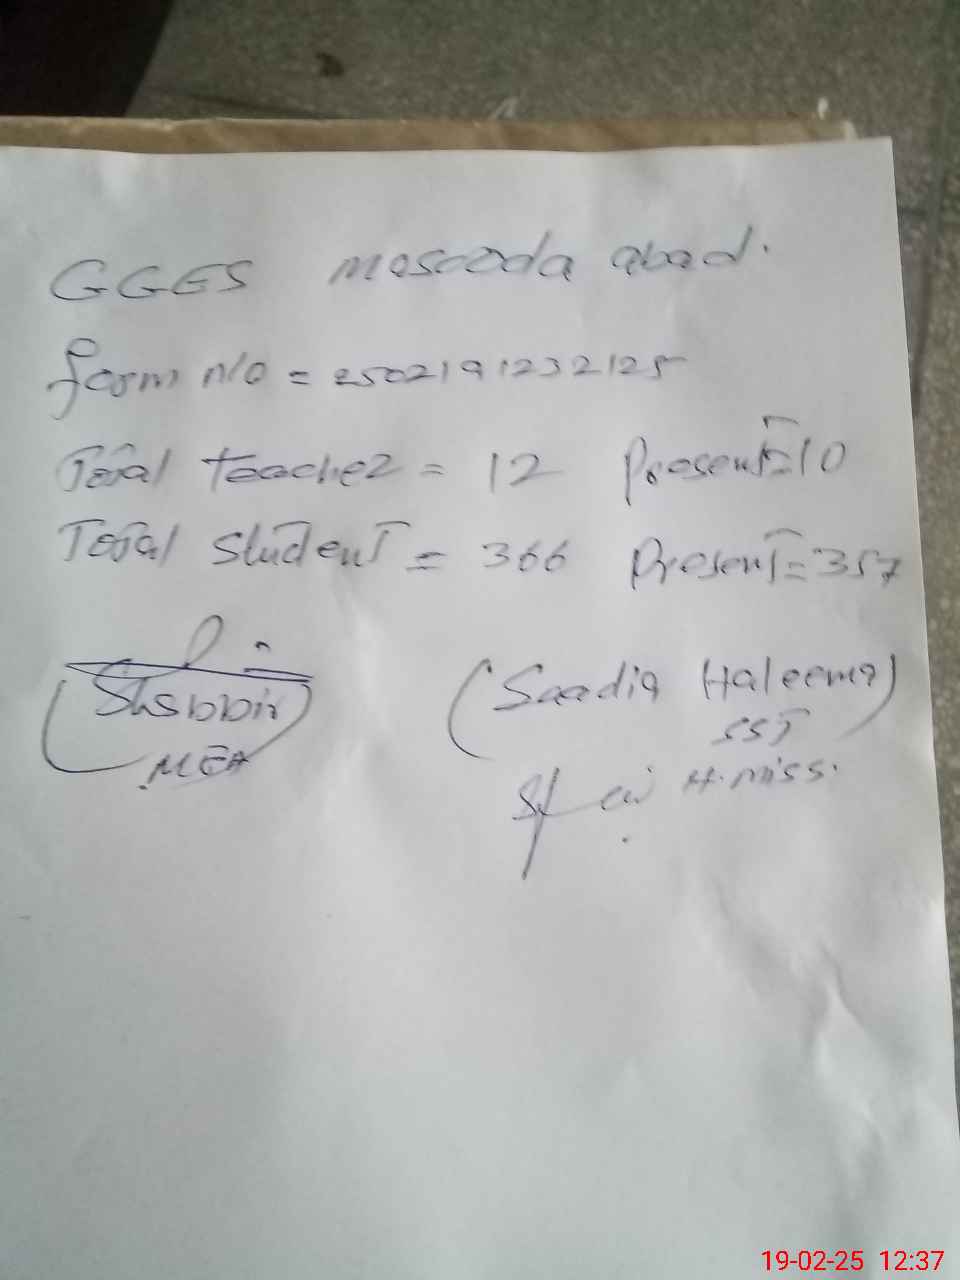 GGES masooda abad.
form n/o = 2502191232125
Total teacher = 12 Present = 10
Total Student = 366 Present = 357
(Shabbir)
MEA
(Saadia Haleema)
SST
H. miss.
19-02-25 12:37